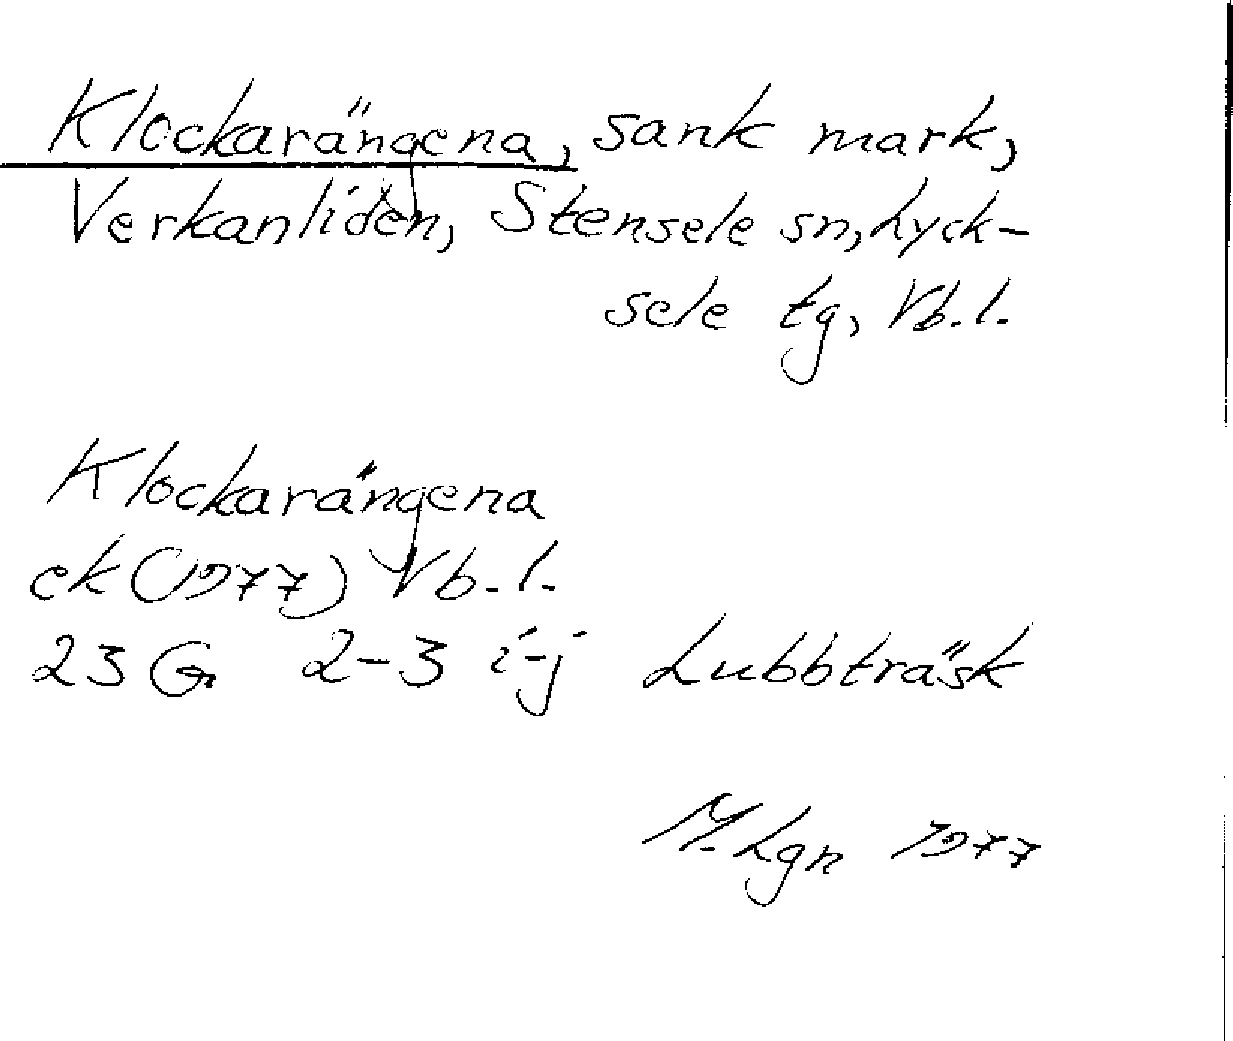 Klockarängena, sank mark,
Verkanliden, Stensele sn, Lyck-
sele tg, Vb. l.
Klockarängena
ek (1977) Vb. l.
23 G 2-3 i-j Lubbträsk
M. Lgn 1977